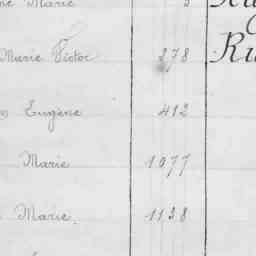 Marie
Marie Victor 278
Eugène 412
Marie 1077
Marie 1138